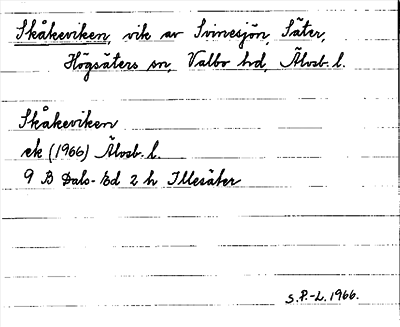 Skåkeviken, vik av Svinesjön, Säter,
Högsäters sn, Valbo hd, Älvsb. l.
Skåkeviken
ek (1966) Älvsb. l.
9 B Dals-Ed 2 h Illesäter
S.P.-L. 1966.